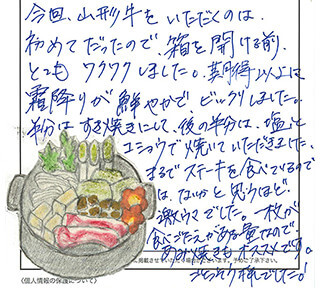 今回、山形牛をいただくのは、
初めてだったので、箱を開ける前、
とてもワクワクしました。期待以上に
霜降りが鮮やかで、ビックリしました。
半分はすき焼きにして、後の半分は、塩と
コショウで焼いていただきました。
まるでステーキを食べているので
は、ないかと思うほど、
激ウマでした。一枚が
食べごたえがある量なので、
あみ焼きもオススメです。
ごちそう様でした!
(個人情報の保護について)